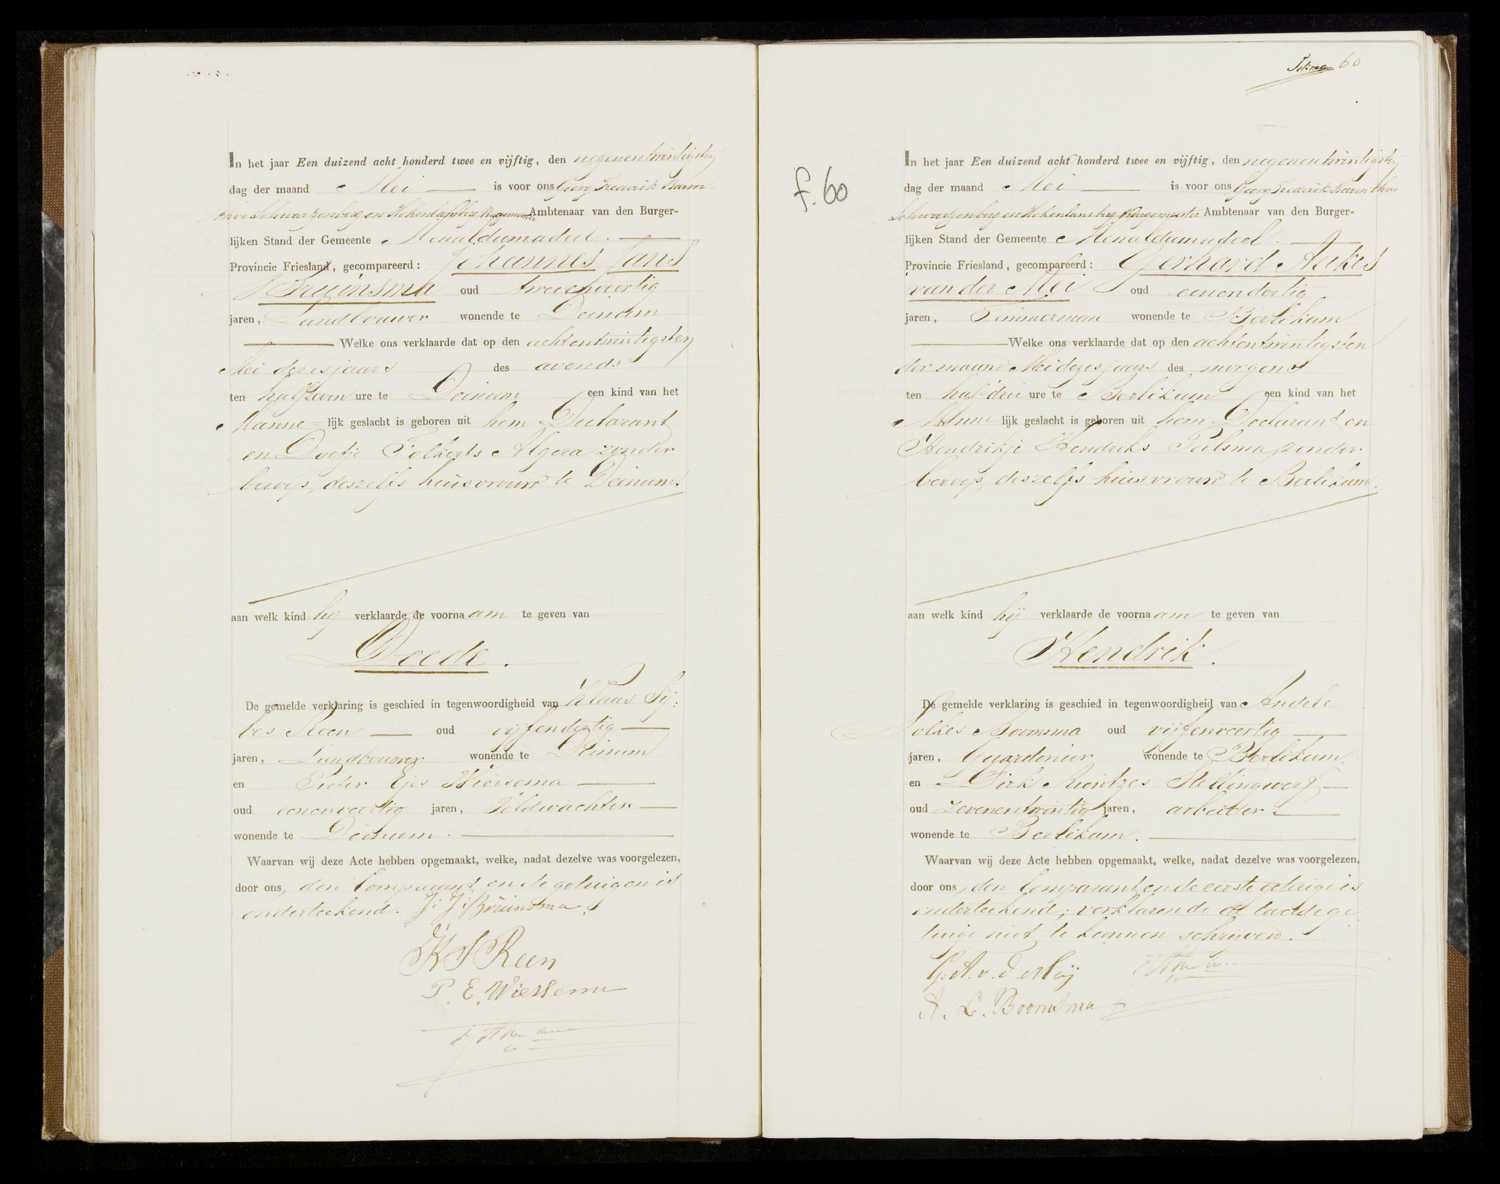 In het jaar Een duizend acht honderd twee en vijftig, den negenentwintigsten
dag der maand Mei is voor ons Georg Frederik Baron
Schwartzenberg en Hohenlansberg Ambtenaar van den Burger-
lijken Stand der Gemeente Menaldumadeel.
Provincie Friesland, gecompareerd: Johannes Jans
Bruinsma oud tweeenveertig
jaren, Landbouwer wonende te Deinum
Welke ons verklaarde dat op den achtentwintigsten
Mei dezes jaars des avonds
ten half ure te Deinum een kind van het
Manne lijk geslacht is geboren uit hem Declarant
en Doetje Folkerts Algera zonder
beroep, deszelfs huisvrouw te Deinum.
aan welk kind hij verklaarde de voornaam te geven van
Doede.
De gemelde verklaring is geschied in tegenwoordigheid van Klaas Sij-
bes Reen oud vijfendertig
jaren, Landbouwer wonende te Deinum
en Pieter Ejes Wiersema
oud eenenveertig jaren, Veldwachter
wonende te Deinum.
Waarvan wij deze Acte hebben opgemaakt, welke, nadat dezelve was voorgelezen,
door ons, den Comparant en de getuigen is
onderteekend. J. J. Bruinsma
K S Reen
P. E. Wiersema
f. 60
60
In het jaar Een duizend acht honderd twee en vijftig, den negenentwintigsten
dag der maand Mei is voor ons Georg Frederik Baron thoe
Schwartzenberg en Hohenlansberg Burgemeester Ambtenaar van den Burger-
lijken Stand der Gemeente Menaldumadeel.
Provincie Friesland, gecompareerd: Gerhard Aukes
van der Meij oud eenendertig
jaren, Timmerman wonende te Berlikum
Welke ons verklaarde dat op den achtentwintigsten
der maand Mei dezes jaars des morgens
ten half drie ure te Berlikum een kind van het
Manne lijk geslacht is geboren uit hem Declarant en
Hendrikje Hendriks Palsma zonder
beroep, deszelfs huisvrouw te Berlikum.
aan welk kind hij verklaarde de voornaam te geven van
Hendrik.
De gemelde verklaring is geschied in tegenwoordigheid van Andele
Lolkes Boomsma oud vijfenveertig
jaren, Gardenier wonende te Berlikum
en Dirk Rientzes Stellingwerf
oud zevenentwintig jaren, arbeider
wonende te Berlikum.
Waarvan wij deze Acte hebben opgemaakt, welke, nadat dezelve was voorgelezen,
door ons, den Comparant en de eerste getuige is
onderteekend; verklarende de laatste ge-
tuige niet te kunnen schrijven.
G. A. v. d. Meij
A. L. Boomsma